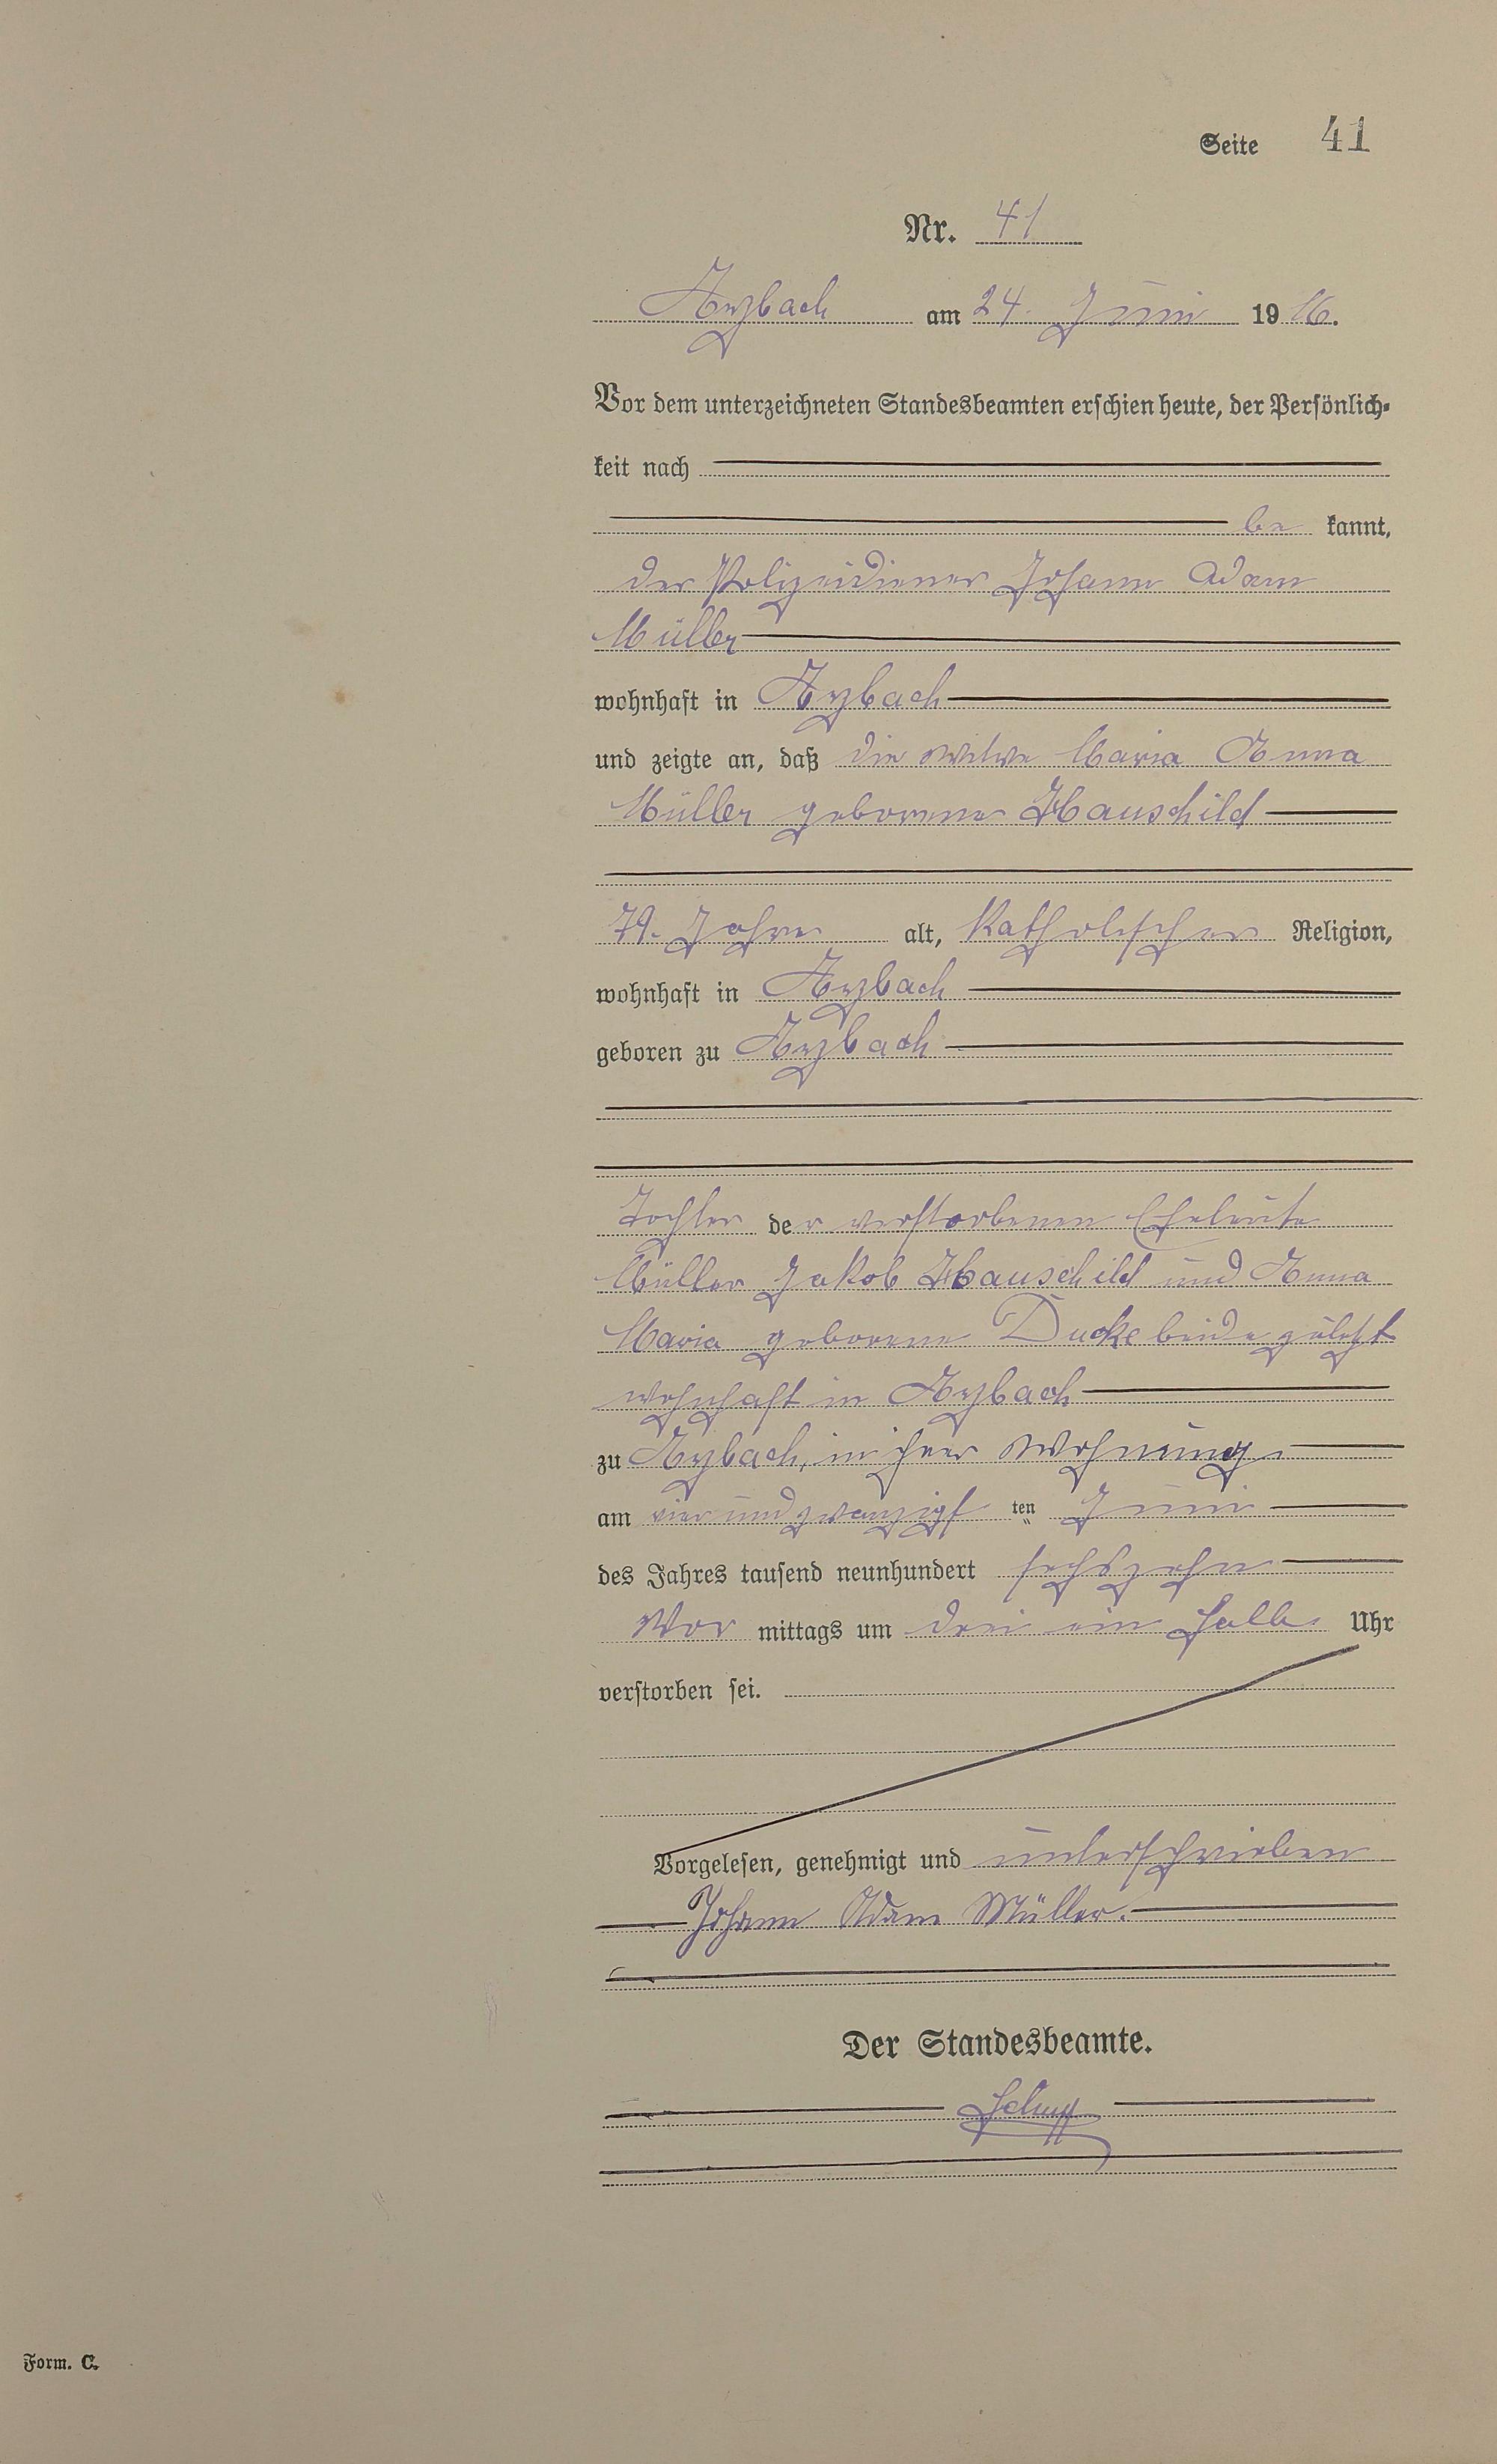 Seite 41
Nr. 41
Arzbach am 24. Juni 1916.
Vor dem unterzeichneten Standesbeamten erschien heute, der Persönlich-
keit nach
be kannt,
der Polizeidiener Johann Adam
Müller
wohnhaft in Arzbach
und zeigte an, daß die Witwe Maria Anna
Müller geborene Hauschild
79. Jahre alt, Katholischer Religion,
wohnhaft in Arzbach
geboren zu Arzbach
Tochter der verstorbenen Eheleute
Müller Jakob Hauschild und Anna
Maria geborene Ducke beide zuletzt
wohnhaft in Arzbach
zu Arzbach, in ihrer Wohnung
am vier und zwanzigs ten Juni
des Jahres tausend neunhundert sechszehn
Vor mittags um drei ein halb Uhr
verstorben sei.
Vorgelesen, genehmigt und unterschrieben
Johann Adam Müller.
Der Standesbeamte.
Form. C.